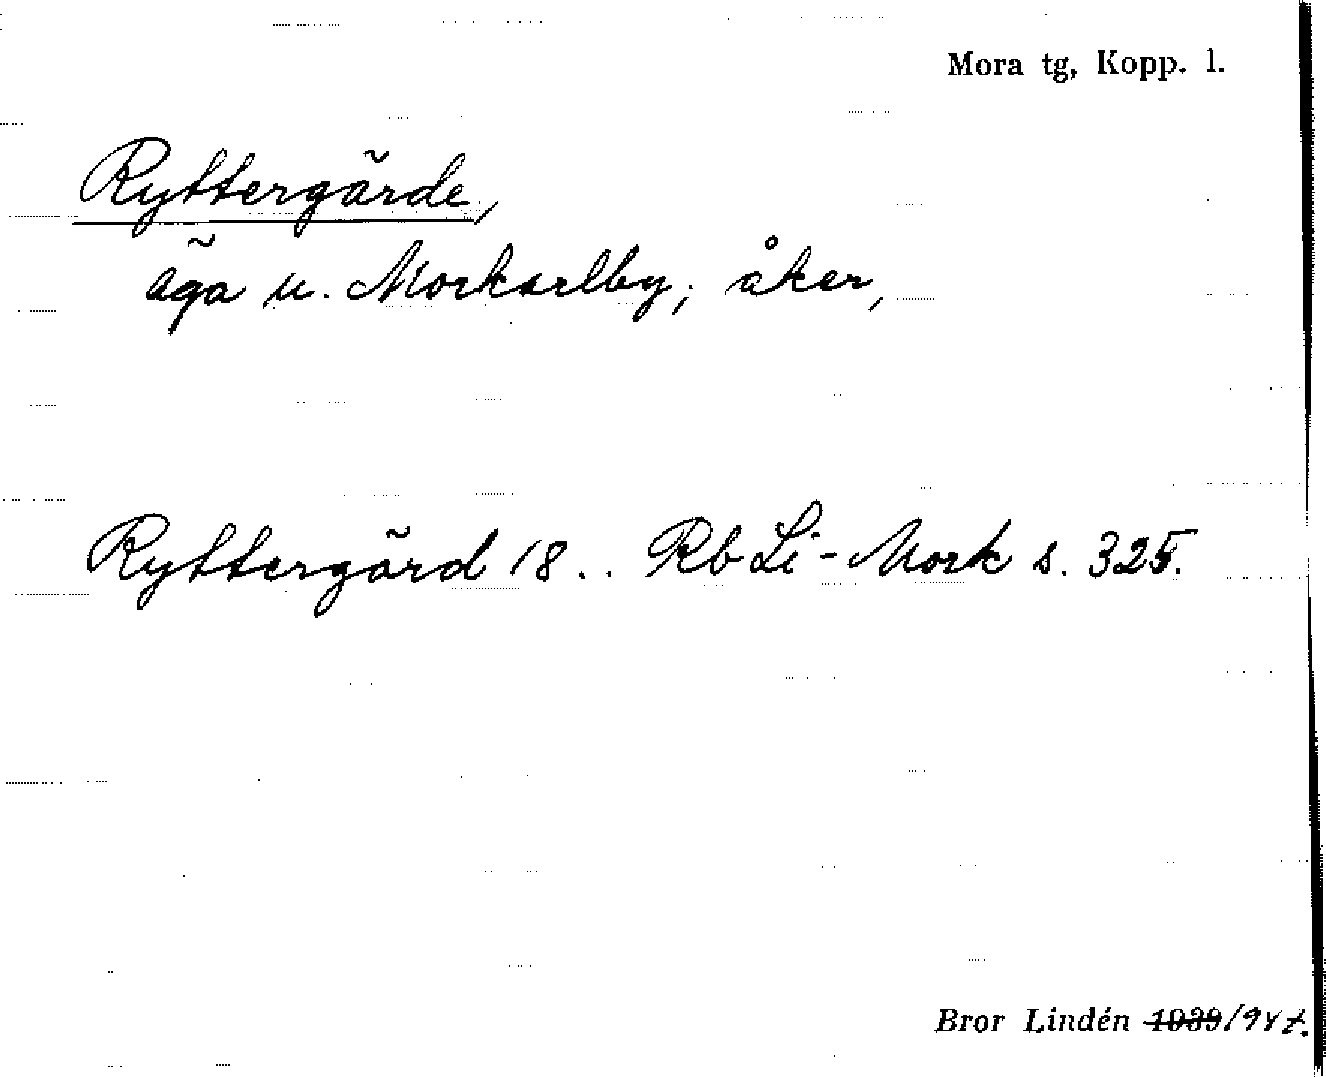 Mora tg, Kopp. l.
Ryttergärde,
äga u. Morkarlby; åker,
Ryttergärd 18.. Rb Li-Mork s. 325.
Bror Lindén 1939/947.